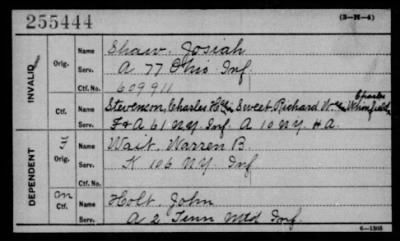 255444 (3-H-4)
INVALID
Orig. Name Shaw, Josiah
Serv. A 77 Ohio Inf.
Ctf. No. 609911
Charles
Ctf. Name Stevenson, Charles H Sweet Richard W
Serv. F & A 61 N.Y. Inf. A 10 N.Y. H A.
DEPENDENT
Orig. Name Wait, Warren B.
Serv. K 106 N.Y. Inf
Ctf. No.
Ctf. Name Holt, John
Serv. A 2 Tenn Mtd Inf.
6-1305